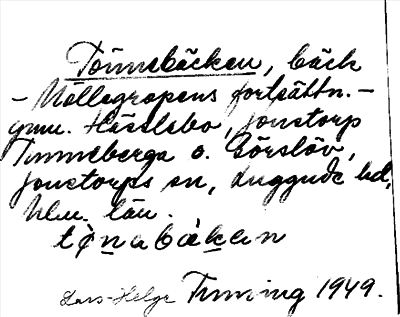 Tönnebäcken, bäck
- Möllegropens fortsättn. -
gnm. Hässlebo, Jonstorp
Tunneberga o. Görslöv,
Jonstorps sn, Luggude hd,
Mlm. län.
tø̀nabàkan
Lars-Helge Tunving 1949.